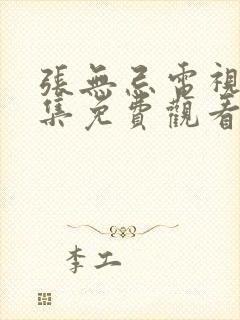 張無忌電視
集免費觀看
李工